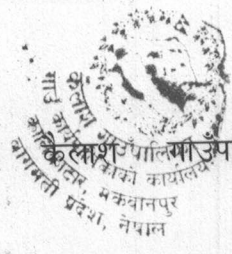 कैलाश गाउँपालिका
गाउँ कार्यपालिकाको कार्यालय
कालिकाटार, मकवानपुर
बागमती प्रदेश, नेपाल
कैलाश गाउँप